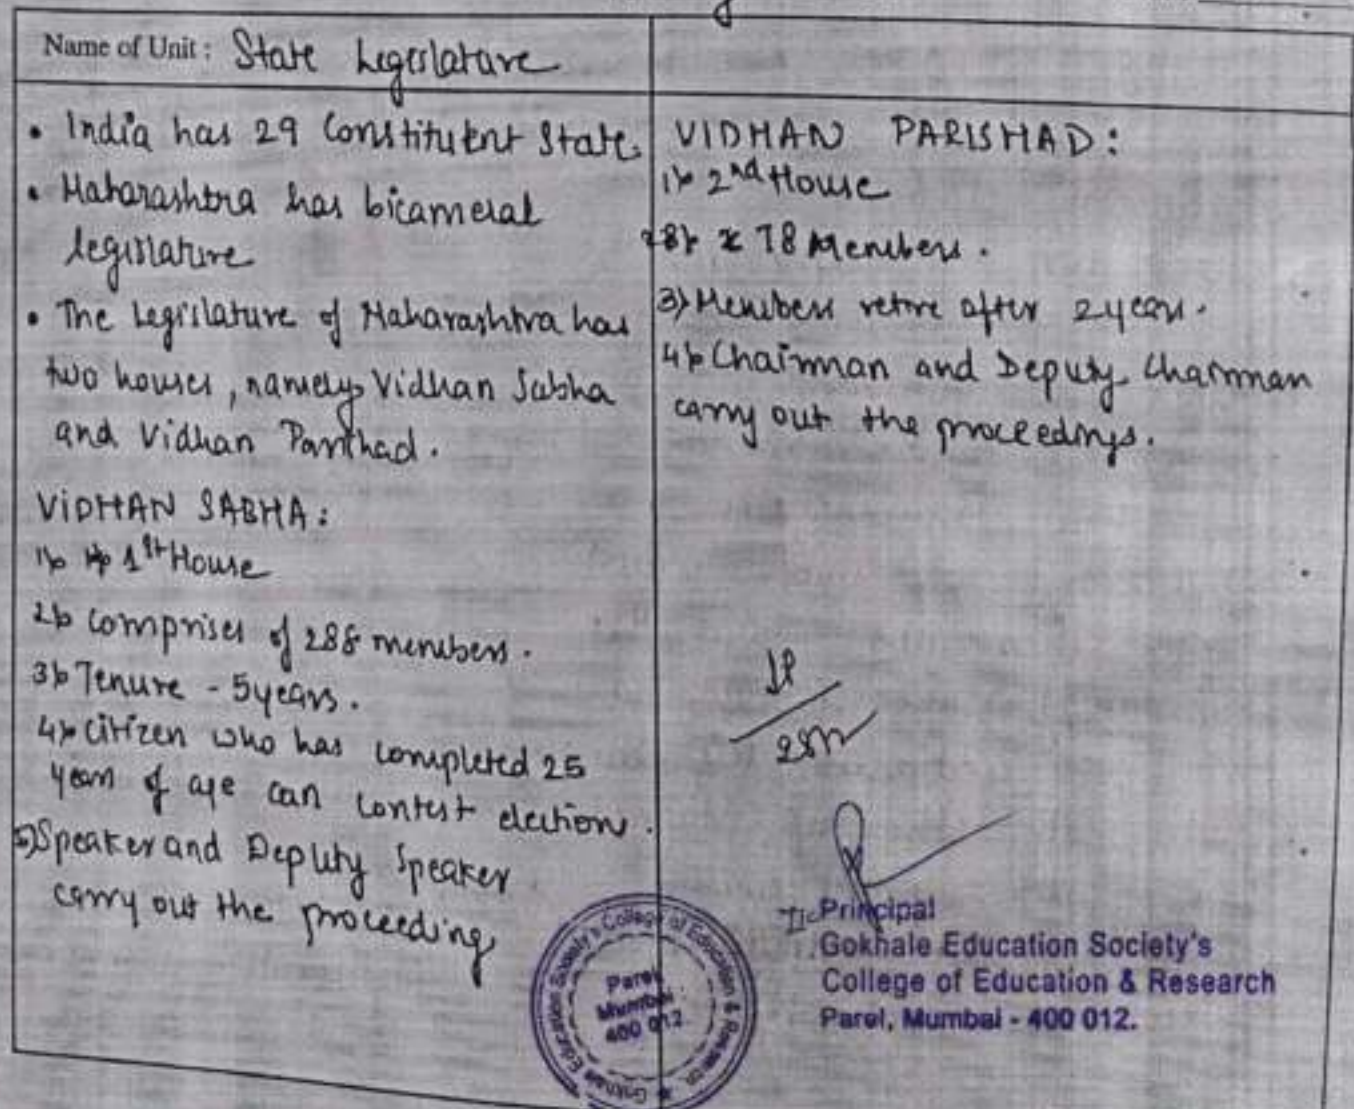 Name of Unit : State Legislature
• India has 29 Constituent State
• Maharashtra has bicameral
legislature
• The Legislature of Maharashtra has
two houses, namely Vidhan Sabha
and Vidhan Parishad.
VIDHAN SABHA:
1) 1st House
2) Comprises of 288 members.
3) Tenure - 5 years.
4) Citizen who has completed 25
years of age can contest elections.
5) Speaker and Deputy Speaker
carry out the proceeding
VIDHAN PARISHAD:
1) 2nd House
78 Members.
3) Members retire after 2 years.
4) Chairman and Deputy Chairman
carry out the proceedings.
I/c Principal
Gokhale Education Society's
College of Education & Research
Parel, Mumbai - 400 012.
Gokhale Education Society's College of Education & Research
Parel
Mumbai
400 012